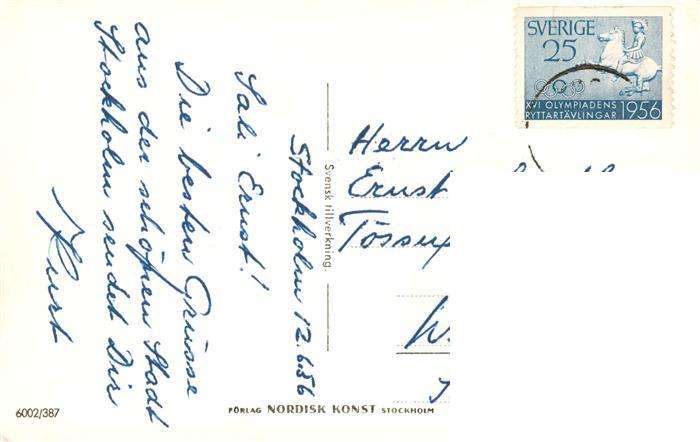 Stockholm 12.6.56
Sali Ernst!
Die besten Grüsse
aus der schönen Stadt
Stockholm sendet Dir
Kurt
Svensk tillverkning
SVERIGE
25
XVI OLYMPIADENS
RYTTARTÄVLINGAR 1956
Herrn
Ernst
6002/387
FÖRLAG NORDISK KONST STOCKHOLM